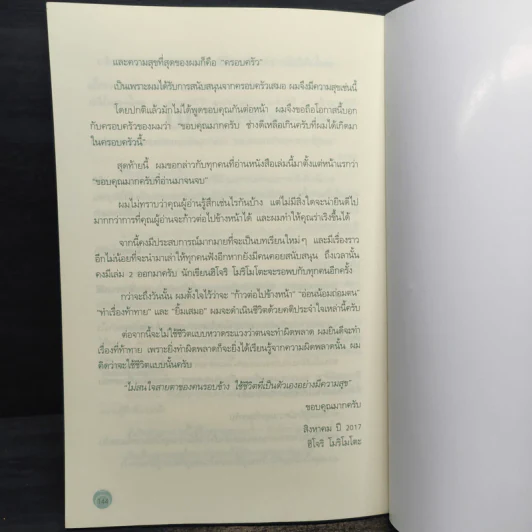 และความสุขที่สุดของผมก็คือ "ครอบครัว"
เป็นเพราะผมได้รับการสนับสนุนจากครอบครัวเสมอ ผมจึงมีความสุขเช่นนี้
โดยปกติแล้วมักไม่ได้พูดขอบคุณกันต่อหน้า ผมจึงขอถือโอกาสนี้บอก
กับครอบครัวของผมว่า "ขอบคุณมากครับ ช่างดีเหลือเกินครับที่ผมได้เกิดมา
ในครอบครัวนี้"
สุดท้ายนี้ ผมขอกล่าวกับทุกคนที่อ่านหนังสือเล่มนี้มาตั้งแต่หน้าแรกว่า
"ขอบคุณมากครับที่อ่านมาจนจบ"
ผมไม่ทราบว่าคุณผู้อ่านรู้สึกเช่นไรกันบ้าง แต่ไม่มีสิ่งใดจะน่ายินดีไป
มากกว่าการที่คุณผู้อ่านจะก้าวต่อไปข้างหน้าได้ และผมทำให้คุณร่าเริงขึ้นได้
จากนี้คงมีประสบการณ์มากมายที่จะเป็นบทเรียนใหม่ๆ และมีเรื่องราว
อีกไม่น้อยที่จะนำมาเล่าให้ทุกคนฟังอีกหากยังมีคนคอยสนับสนุน ถึงเวลานั้น
คงมีเล่ม 2 ออกมาครับ นักเขียนฮิโจริ โมริโมโตะจะรอพบกับทุกคนอีกครั้ง
กว่าจะถึงวันนั้น ผมตั้งใจไว้ว่าจะ "ก้าวต่อไปข้างหน้า" "อ่อนน้อมถ่อมตน"
"ทำเรื่องที่ท้าทาย" และ "ยิ้มเสมอ" ผมจะดำเนินชีวิตด้วยคติประจำใจเหล่านี้ครับ
ต่อจากนี้จะไม่ใช้ชีวิตแบบหวาดระแวงว่าตนจะทำผิดพลาด ผมยินดีจะทำ
เรื่องที่ท้าทาย เพราะยิ่งทำผิดพลาดก็จะยิ่งได้เรียนรู้จากความผิดพลาดนั้น ผม
คิดว่าจะใช้ชีวิตแบบนั้นครับ
"ไม่สนใจสายตาของคนรอบข้าง ใช้ชีวิตที่เป็นตัวเองอย่างมีความสุข"
ขอบคุณมากครับ
สิงหาคม ปี 2017
ฮิโจริ โมริโมโตะ
144